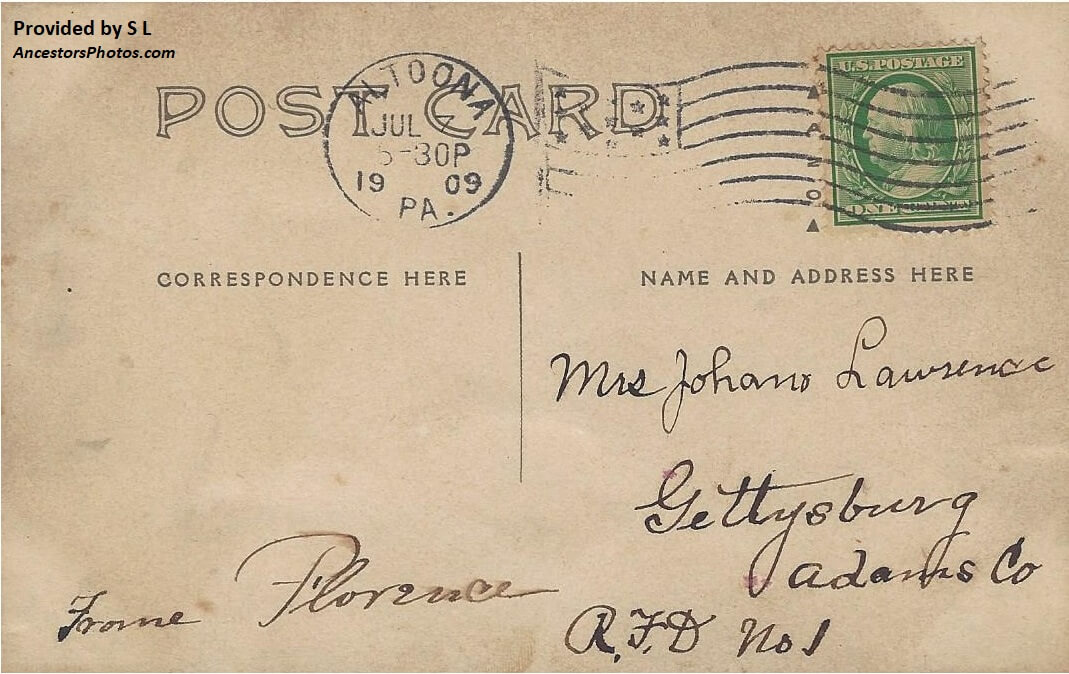 Provided by S L
AncestorsPhotos.com
POST CARD
ALTOONA
JUL 7
5-30P
19 09
PA.
U.S. POSTAGE
ONE CENT
CORRESPONDENCE HERE
NAME AND ADDRESS HERE
Mrs Lawrence
Gettysburg
Adams Co
R.F.D No 1
Frome Florence